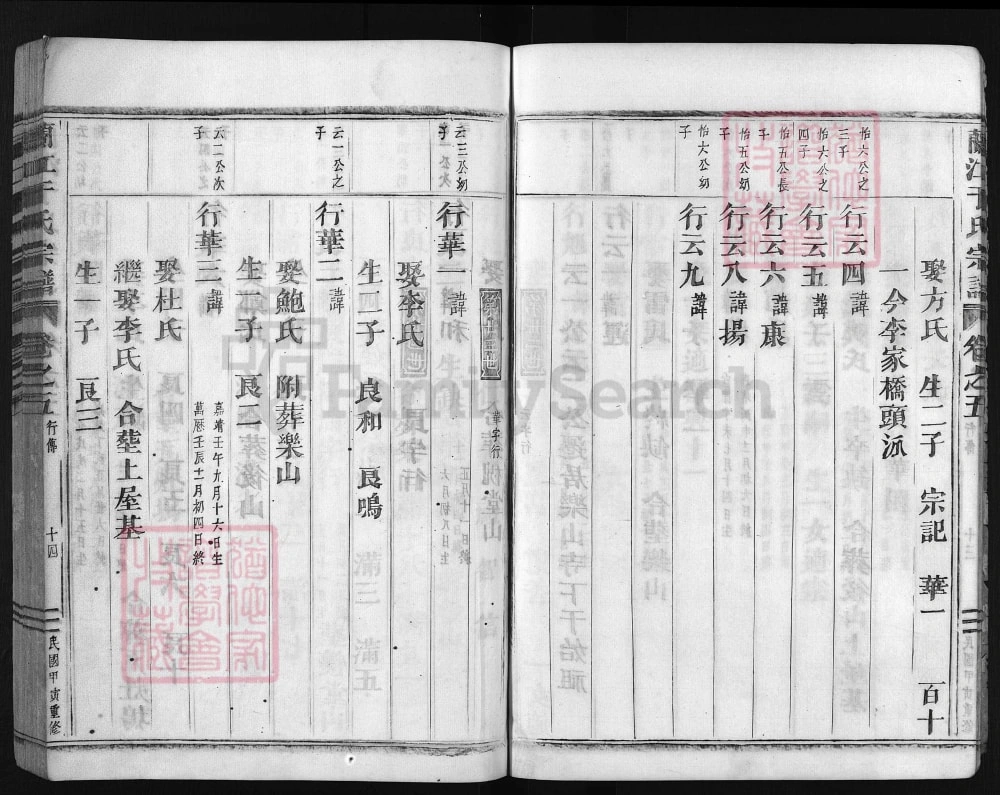 蘭江于氏宗譜 卷之五 行傳 十三 民國甲寅重修
娶方氏 生二子 宗記 華一 百十
一今李家橋頭派
怡六公之三子
行云四 諱
怡六公之四子
行云五 諱
怡五公長子
行云六 諱康
怡五公幼子
行云八 諱揚
怡大公幼子
行云九 諱
華字行
云三公幼子
行華一 諱
娶李氏
生二子 良和 良鳴
云一公之子
行華二 諱
娶鮑氏 附葬樂山
生一子 良二
云二公次子
行華三 諱
嘉靖壬午九月十六日生
萬厯壬辰十一月初四日終
娶杜氏
繼娶李氏 合塟土屋基
生一子 良三
蘭江于氏宗譜 卷之五 行傳 十四 民國甲寅重修
FamilySearch